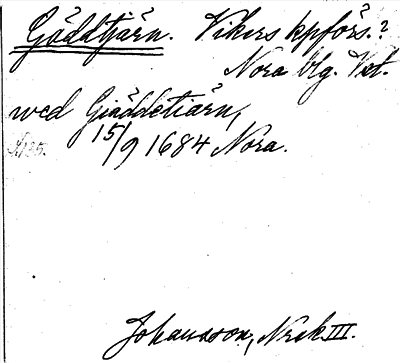 Gäddtjärn. Vikers kpförs.?
Nora blg. Vstm.
wed Giäddetiärn,
15/9 1684 Nora.
Johansson, Nrek III.